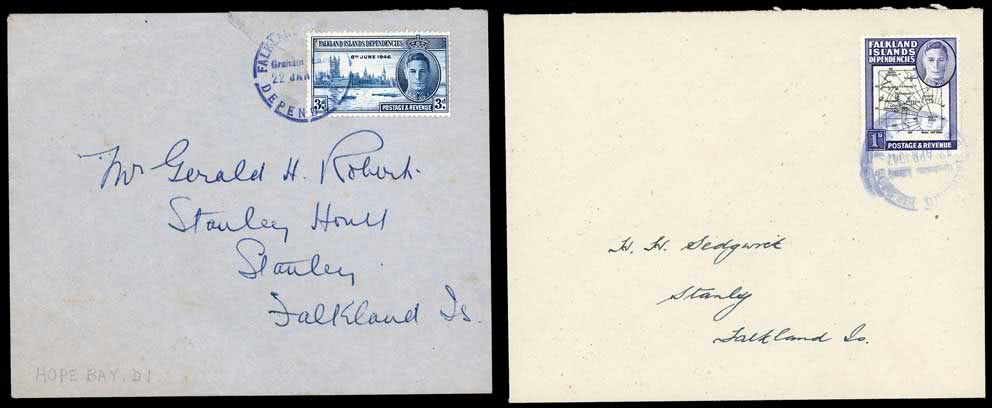 FALKLAND ISLANDS DEPENDENCIES
8TH JUNE 1946
3D 3D
POSTAGE & REVENUE
Graham
22 JAN
DEPEN
Mr Gerald H. Robert
Stanley House
Stanley
Falkland Is.
HOPE BAY. D1
FALKLAND
ISLANDS
DEPENDENCIES
1D
POSTAGE & REVENUE
H. H. Sedgwick
Stanly
Falkland Is.